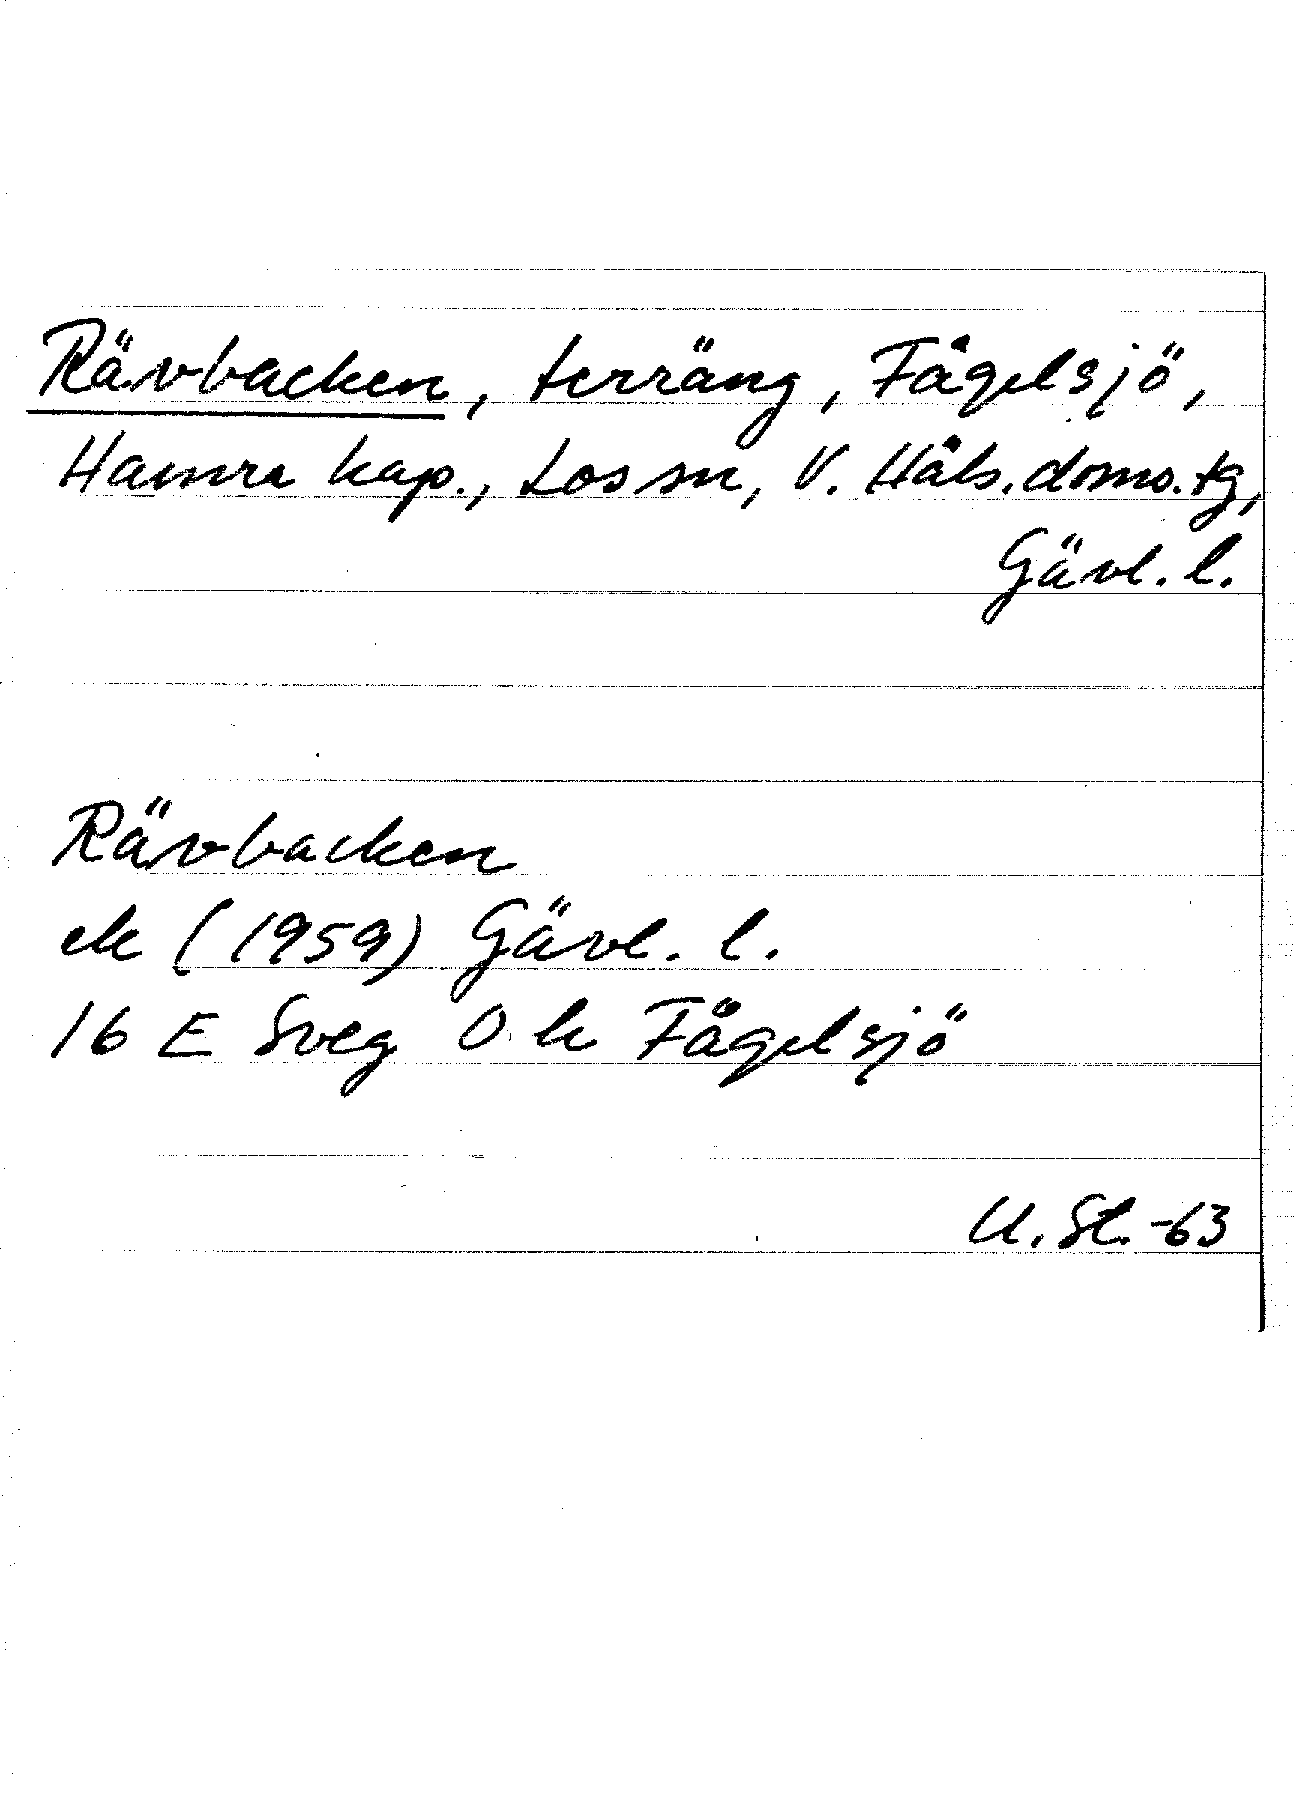 Rävbacken, terräng, Fågelsjö,
Hamra kap., Los sn, V. Häls. doms. tg,
Gävl. l.
Rävbacken
ek (1959) Gävl. l.
16 E Sveg O k Fågelsjö
U. St. -63